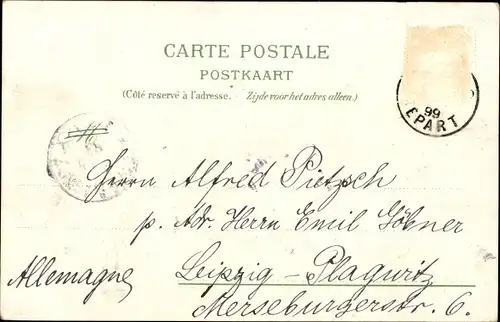 CARTE POSTALE
POSTKAART
(Côté reservé à l'adresse. Zijde voor het adres alleen.)
99
EPART
Herrn Alfred Pietzsch
p. Adr. Herrn Emil Göbner
Allemagne
Leipzig – Plagwitz
Merseburgerstr. 6.